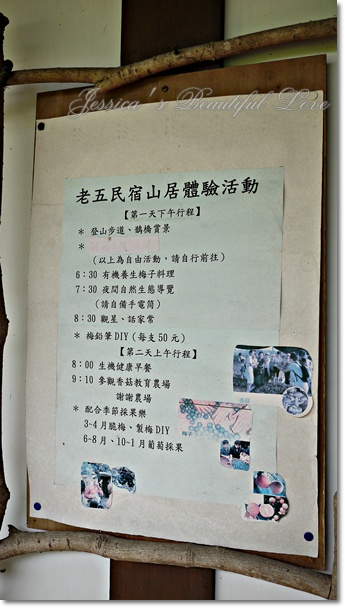 Jessica's Beautiful Love
老五民宿山居體驗活動
【第一天下午行程】
* 登山步道、鵲橋賞景
*
(以上為自由活動，請自行前往)
6：30 有機養生梅子料理
7：30 夜間自然生態導覽
(請自備手電筒)
8：30 觀星、話家常
* 梅鉛筆DIY(每支50元)
【第二天上午行程】
8：00 生機健康早餐
9：10 參觀香菇教育農場
謝謝農場
* 配合季節採果樂
3~4月脆梅、製梅DIY
6~8月、10~1月葡萄採果
梅子